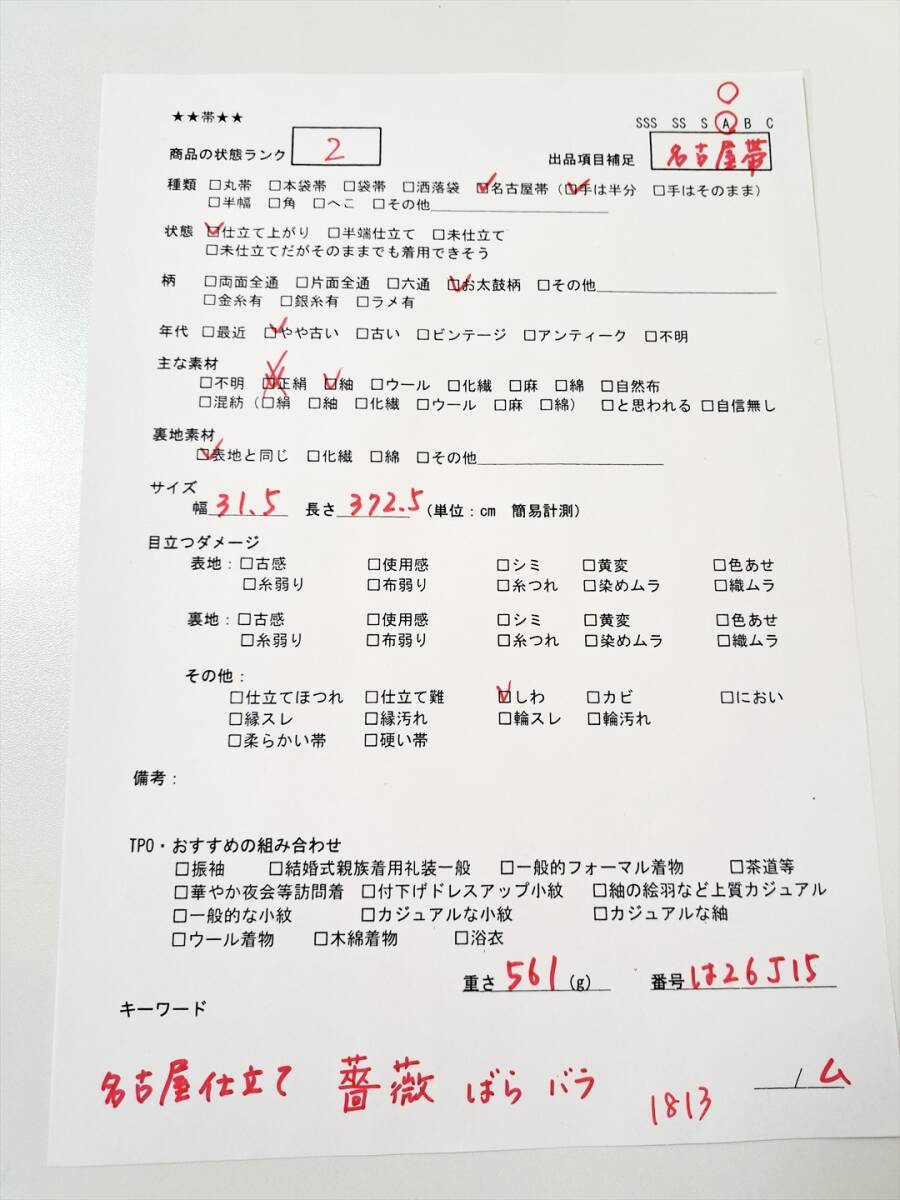 ★★帯★★
SSS SS S A B C
商品の状態ランク 2 出品項目補足 名古屋帯
種類 □丸帯 □本袋帯 □袋帯 □洒落袋 □名古屋帯（□手は半分 □手はそのまま）
□半幅 □角 □へこ □その他
状態 □仕立て上がり □半端仕立て □未仕立て
□未仕立てだがそのままでも着用できそう
柄 □両面全通 □片面全通 □六通 □お太鼓柄 □その他
□金糸有 □銀糸有 □ラメ有
年代 □最近 □やや古い □古い □ビンテージ □アンティーク □不明
主な素材
□不明 □正絹 □紬 □ウール □化繊 □麻 □綿 □自然布
□混紡（□絹 □紬 □化繊 □ウール □麻 □綿） □と思われる □自信無し
裏地素材
□表地と同じ □化繊 □綿 □その他
サイズ
幅 31.5 長さ 372.5 （単位：cm 簡易計測）
目立つダメージ
表地：□古感 □使用感 □シミ □黄変 □色あせ
□糸弱り □布弱り □糸つれ □染めムラ □織ムラ
裏地：□古感 □使用感 □シミ □黄変 □色あせ
□糸弱り □布弱り □糸つれ □染めムラ □織ムラ
その他：
□仕立てほつれ □仕立て難 □しわ □カビ □におい
□縁スレ □縁汚れ □輪スレ □輪汚れ
□柔らかい帯 □硬い帯
備考：
TPO・おすすめの組み合わせ
□振袖 □結婚式親族着用礼装一般 □一般的フォーマル着物 □茶道等
□華やか夜会等訪問着 □付下げドレスアップ小紋 □紬の絵羽など上質カジュアル
□一般的な小紋 □カジュアルな小紋 □カジュアルな紬
□ウール着物 □木綿着物 □浴衣
重さ 561 (g) 番号 は26J15
キーワード
名古屋仕立て 薔薇 ばら バラ 1813 / ム